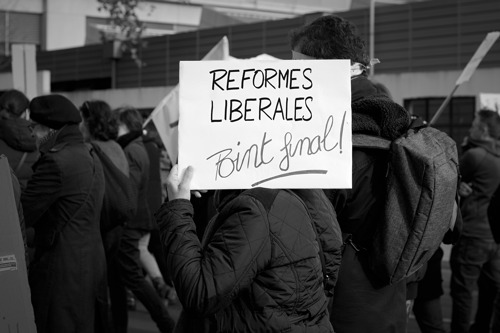 REFORMES
LIBERALES
Point final!